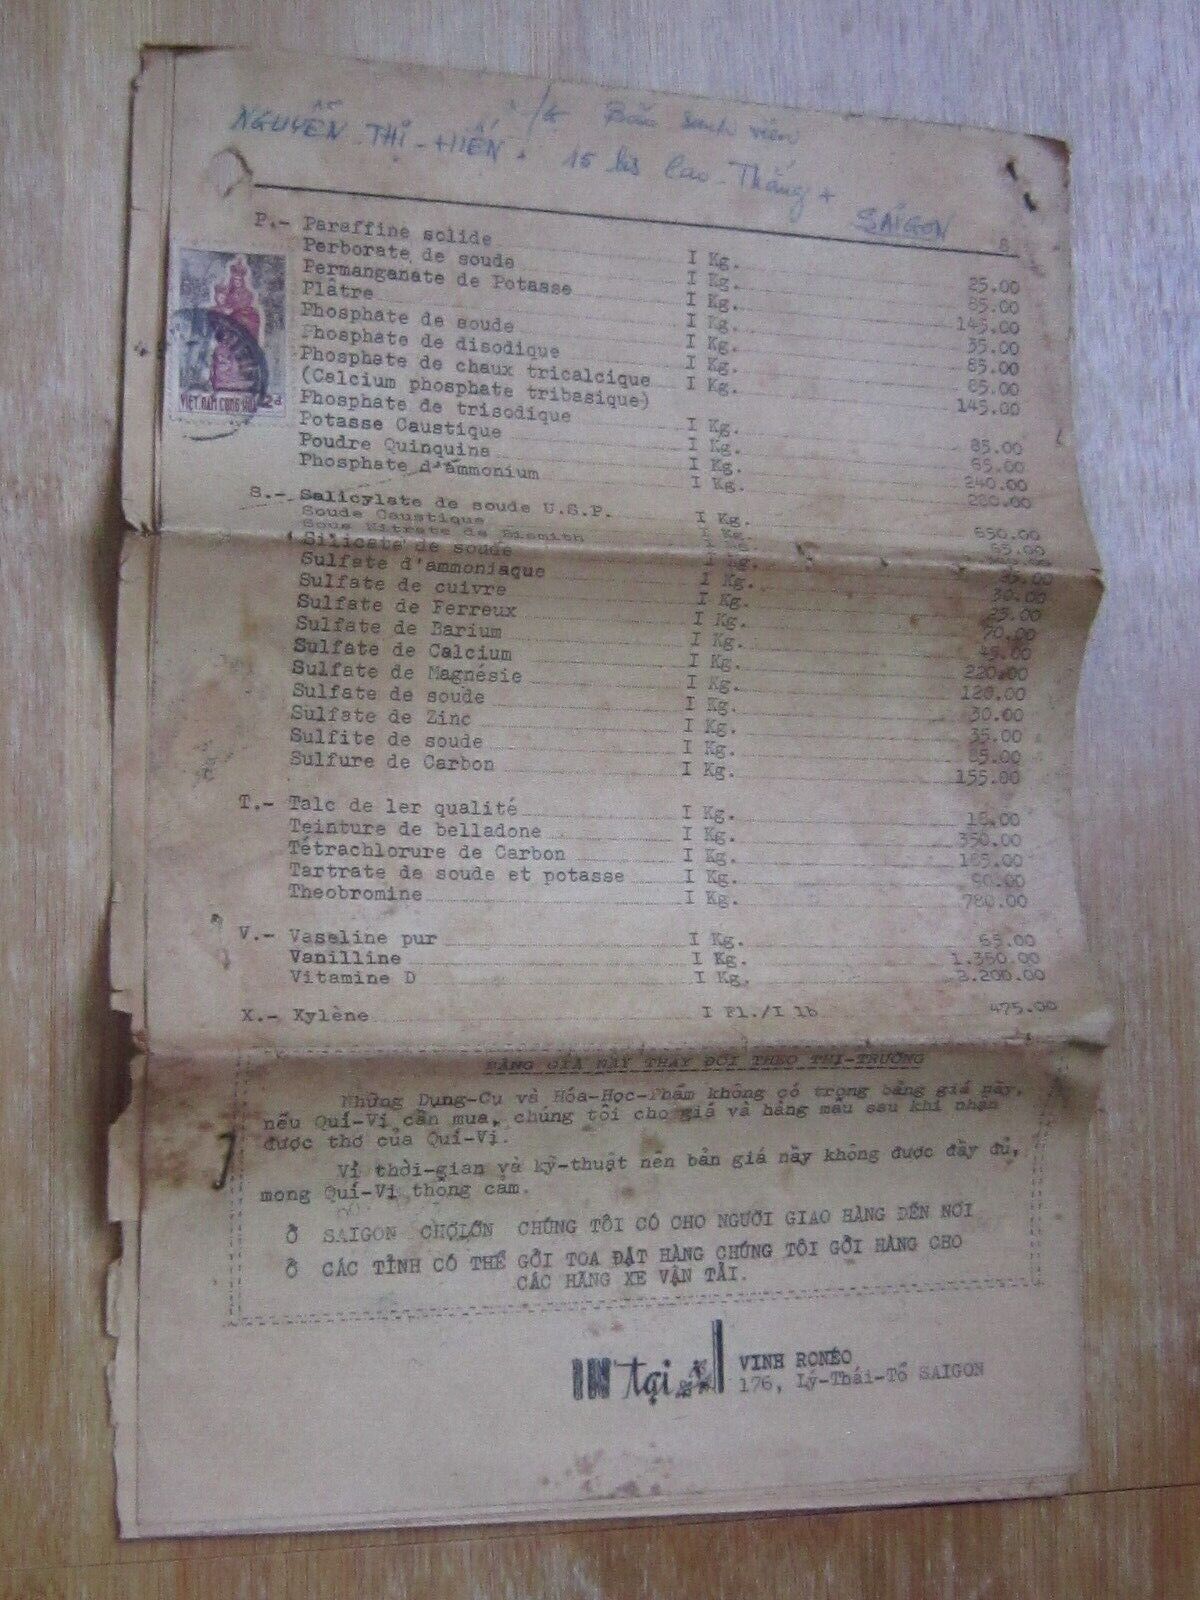 NGUYỄN-THỊ-HIỀN. 15 bis Cao-Thắng +
SAIGON
$.
P.- Paraffine solide I Kg. 25.00
Perborate de soude I Kg. 85.00
Permanganate de Potasse I Kg. 145.00
Plâtre I Kg. 35.00
Phosphate de soude I Kg. 85.00
Phosphate de disodique I Kg. 85.00
Phosphate de chaux tricalcique I Kg. 145.00
(Calcium phosphate tribasique)
Phosphate de trisodique I Kg. 85.00
Potasse Caustique I Kg. 65.00
Poudre Quinquina I Kg. 240.00
Phosphate d'ammonium I Kg. 280.00
S.- Salicylate de soude U.S.P. I Kg. 650.00
Soude Caustique I Kg. 65.00
Sous Nitrate de Bismith I Kg.
Silicate de soude I Kg. 30.00
Sulfate d'ammoniaque I Kg. 25.00
Sulfate de cuivre I Kg. 70.00
Sulfate de Ferreux I Kg. 45.00
Sulfate de Barium I Kg. 220.00
Sulfate de Calcium I Kg. 120.00
Sulfate de Magnésie I Kg. 30.00
Sulfate de soude I Kg. 35.00
Sulfate de Zinc I Kg.
Sulfite de soude I Kg. 85.00
Sulfure de Carbon I Kg. 155.00
T.- Talc de 1er qualité I Kg. 18.00
Teinture de belladone I Kg. 350.00
Tétrachlorure de Carbon I Kg. 185.00
Tartrate de soude et potasse I Kg. 90.00
Theobromine I Kg. 780.00
V.- Vaseline pur I Kg. 65.00
Vanilline I Kg. 1.350.00
Vitamine D I Kg. 3.200.00
X.- Xylène I Fl./I lb 475.00
BẢNG GIÁ NÀY THAY ĐỔI THEO THỊ-TRƯỜNG
Những Dụng-Cụ và Hóa-Học-Phẩm không có trong bảng giá này,
nếu Quí-Vị cần mua, chúng tôi cho giá và hàng mẫu sau khi nhận
được thơ của Quí-Vị.
Vì thời-gian và kỹ-thuật nên bản giá này không được đầy đủ,
mong Quí-Vị thông cảm.
Ở SAIGON CHỢLỚN CHÚNG TÔI CÓ CHO NGƯỜI GIAO HÀNG ĐẾN NƠI
Ở CÁC TỈNH CÓ THỂ GỞI TOA ĐẶT HÀNG CHÚNG TÔI GỞI HÀNG CHO
CÁC HÃNG XE VẬN TẢI.
IN tại
VINH RONÉO
176, Lý-Thái-Tổ SAIGON
VIỆT NAM CỘNG HÒA 2đ